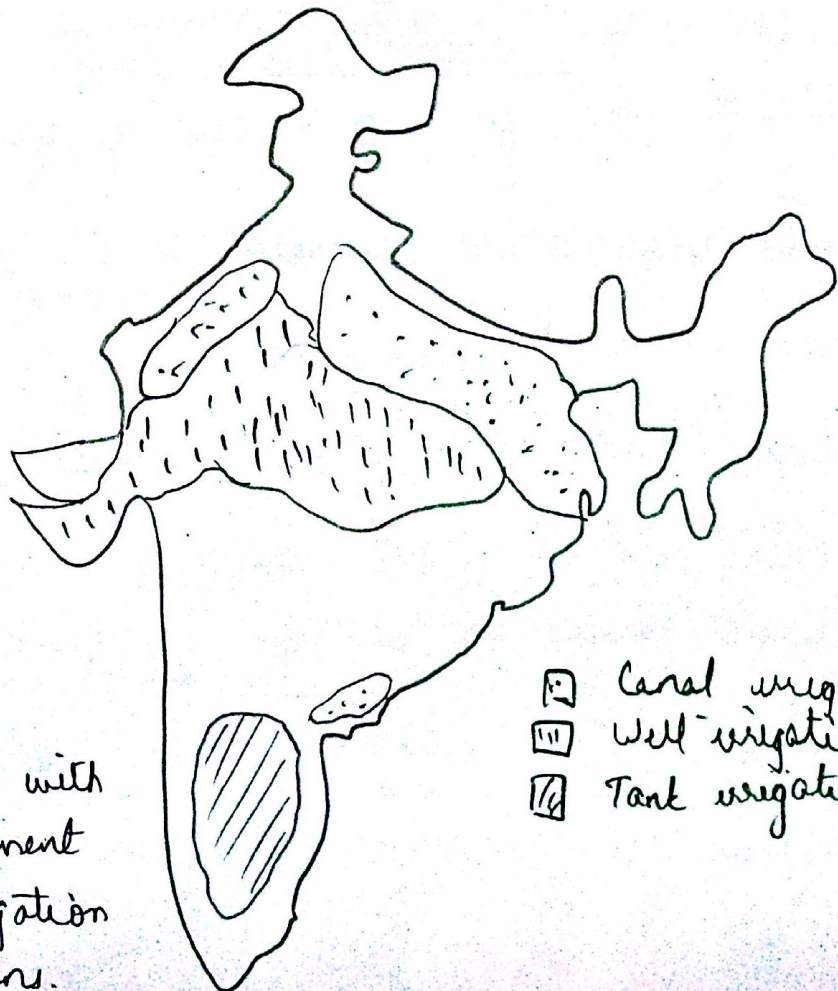 Canal irrig
Well irrigati
Tank irrigati
with
nent
gation
ns.